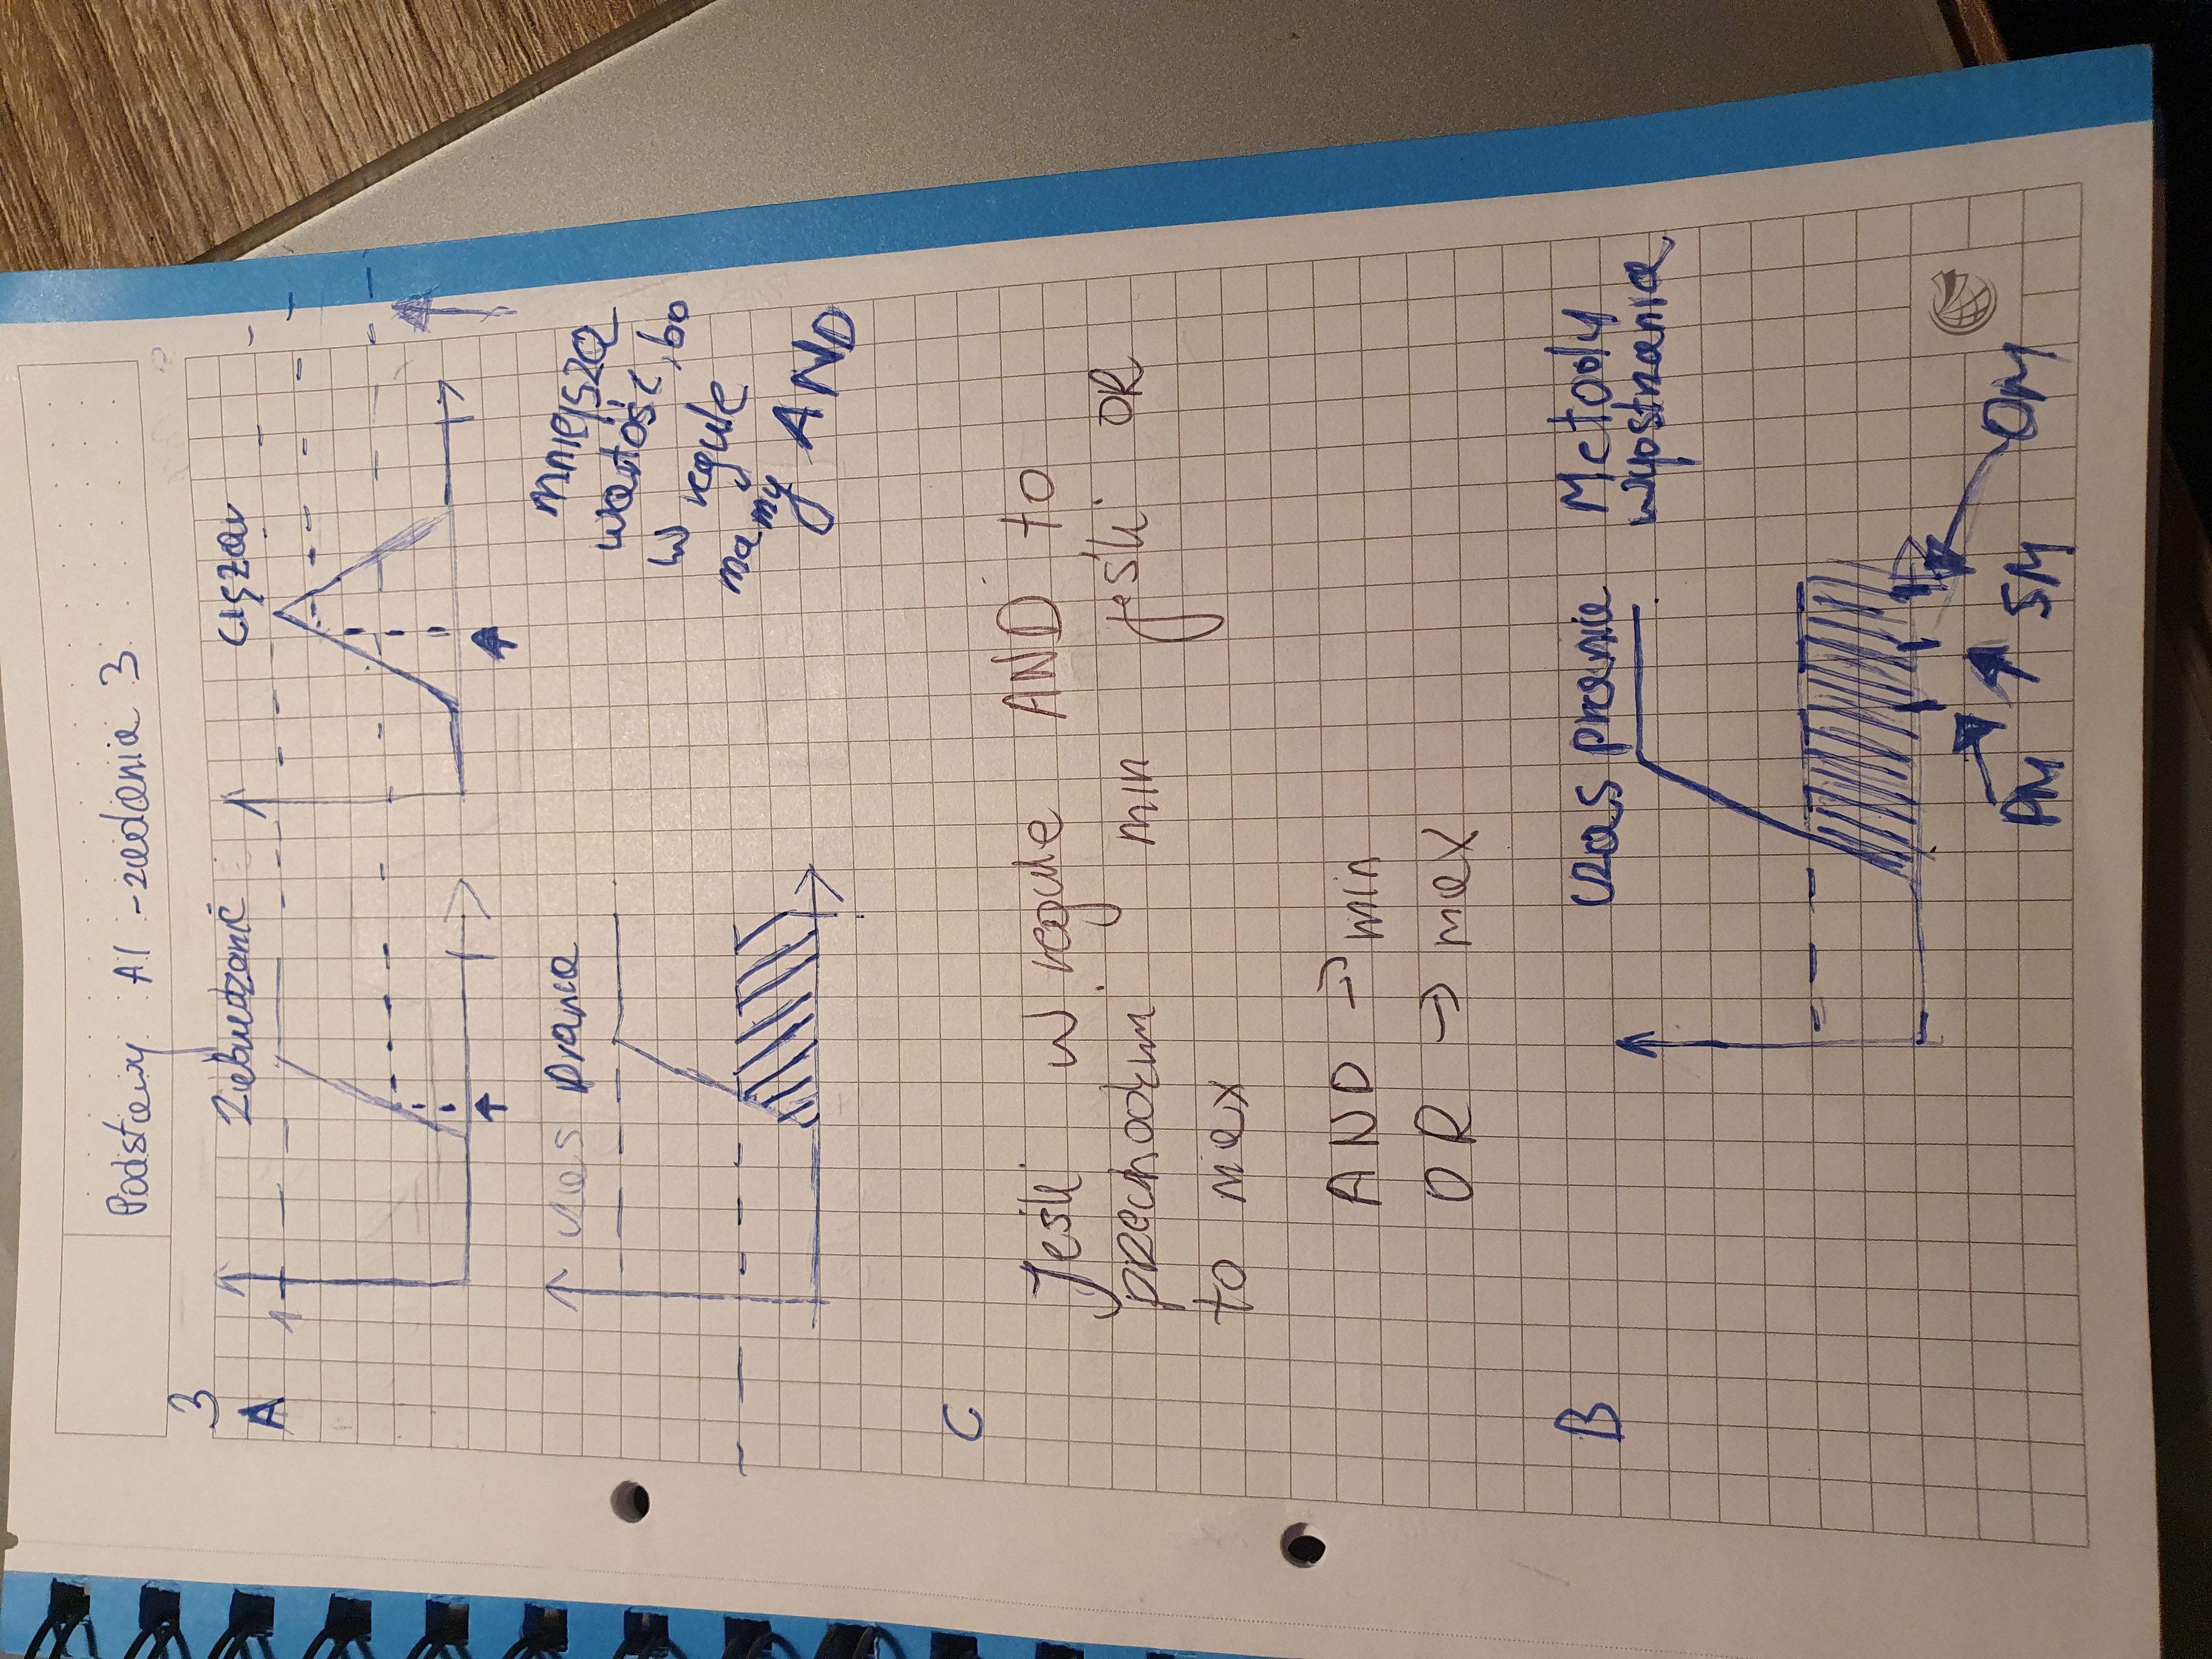 Podstawy AI - zadania 3
3
A
Zabrudzenie
ciężar
1
czas prania
mniejsza
wartość, bo
w regule
mamy AND
C
Jeśli w regule AND to
min jeśli OR
to max
AND → min
OR → max
B
czas prania Metody
wyostrzania
PM SM OM